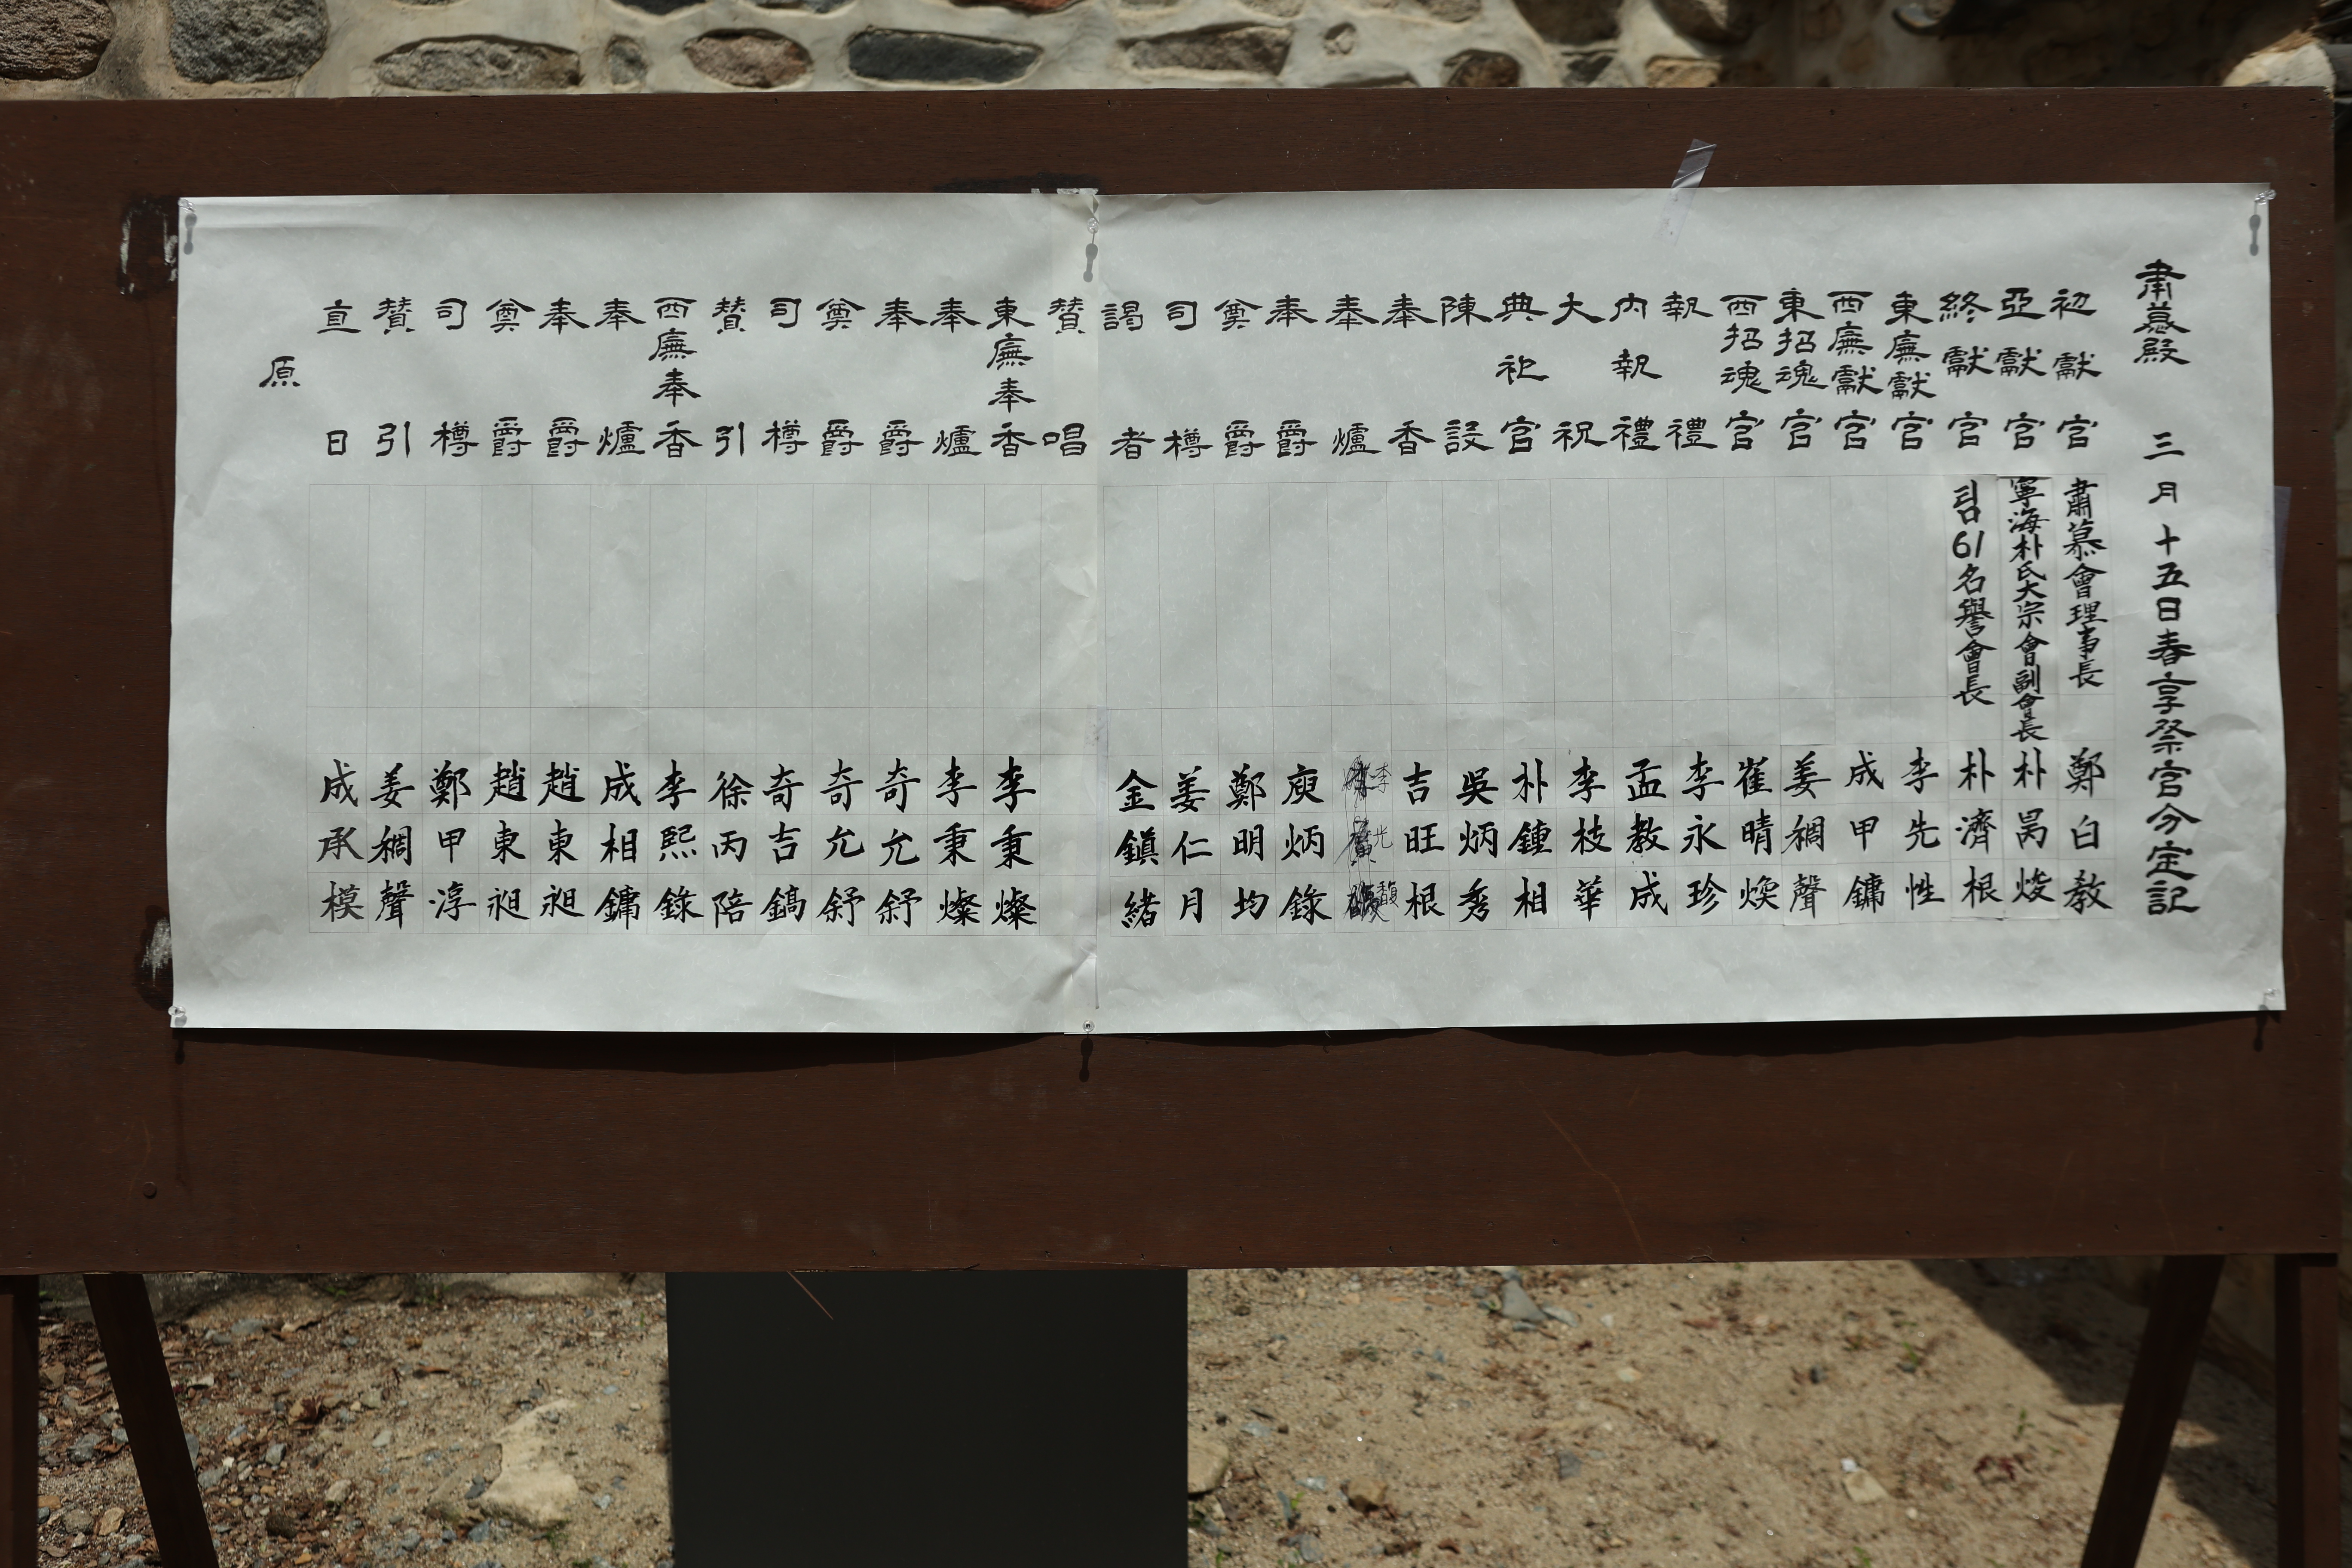 肅慕殿 三月十五日春享祭官分定記
初獻官 肅慕會理事長 鄭白教
亞獻官 寧海朴氏大宗會副會長 朴昺焌
終獻官 팀61名譽會長 朴濟根
東廡獻官 李先性
西廡獻官 成甲鏞
東招魂官 姜稠聲
西招魂官 崔晴煥
執禮 李永珍
內執禮 孟教成
大祝 李枝華
典祀官 朴鍾相
陳設 吳炳秀
奉香 吉旺根
奉爐 李光馥
奉爵 庾炳錄
奠爵 鄭明均
司樽 姜仁月
謁者 金鎭緖
賛唱
東廡奉香 李秉燦
奉爐 李秉燦
奉爵 奇允舒
奠爵 奇允舒
司樽 奇吉鎬
賛引 徐丙陪
西廡奉香 李熙錄
奉爐 成相鏞
奉爵 趙東昶
奠爵 趙東昶
司樽 鄭甲淳
賛引 姜稠聲
直日 成承模
原